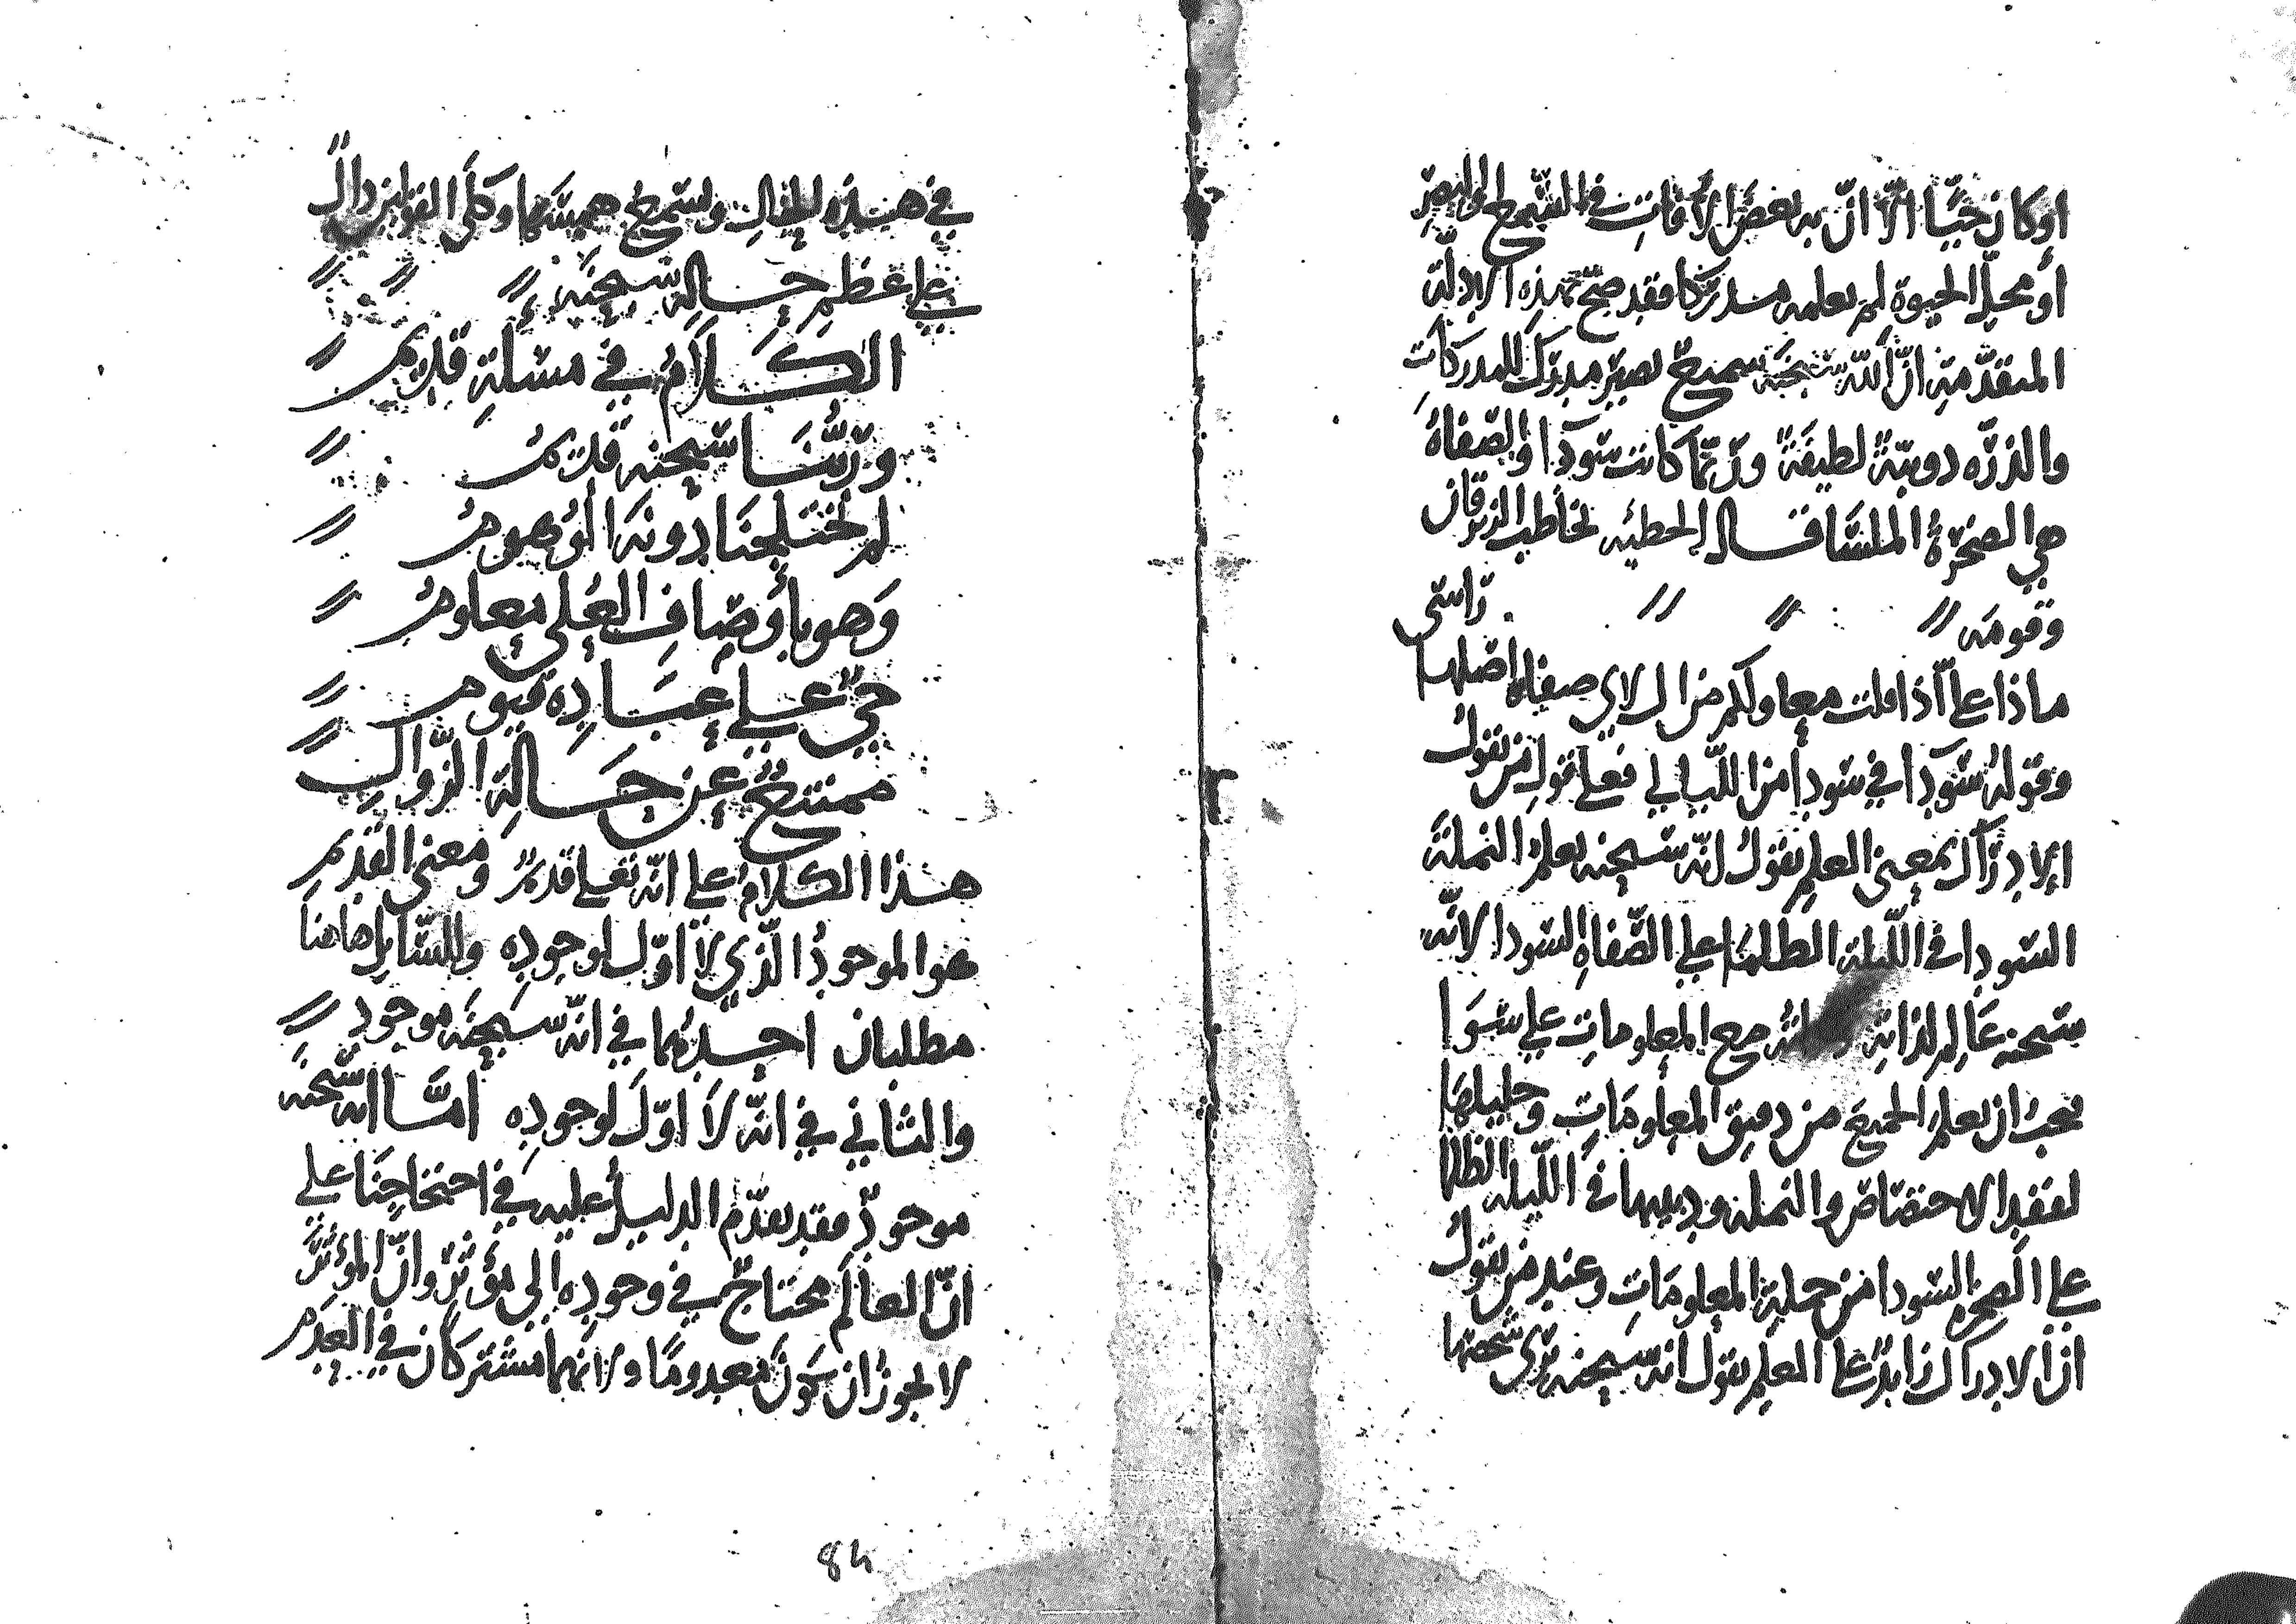 أو كان حيًّا الّا انّ به بعض الأفات في السّمع والبصر
أو محل الحيوة لم نعلمه مدركا فقد صحّ بهذه الادلة
المتقدّمة انّ اللّه سبحنه سميع بصير مدرك للمدركات
والذرّه دويبّة لطيفة وربّما كانت سودآ والصفاة
هي الصخرة الملسا قال الحطيئه يخاطب الزبرقان
وقومه
ماذا على أذا فلت معاولكم من ال لاي صفاة اصلها راسي
وقوله سودآ في سودا من الليالي فعلى قول من يقول
الإدراك بمعنى العلم يقول انّه سبحنه يعلم النملة
السودا في اللّيلة الظلما على الصّفاة السودا لانّه
سبحنه عالم لذاته جميع المعلومات على سوا
يجب ان يعلم الجميع من دقيق المعلومات وجليلها
لفقد الاختصاص والنملة ودبيبها في اللّيلة الظلما
على الصخرة السودا من جملة المعلومات وعند من يقول
ان الادراك زايد على العلم يقول انه سبحنه يرى شخصها
في هذه الحال ويسمع هميسها وكلى القولين دالّ
على عظم جلاله سبحنه
الكلام في مسألة قديم
وربّنا سبحنه قديم
لم تختلجنا دونه الوهوم
وهو بأوصاف العلى معلوم
حيّ على عباده قيوم
ممتنع عن حالة الزّوال
هذا الكلام على انّه تعلى قديم ومعنى القديم
هو الموجود الّذي لا اوّل لوجوده وللسّايل هاهنا
مطلبان احدهما في انّه سبحنه موجود
والثاني في انّه لا اوّل لوجوده امّا انه سبحنه
موجود فقد تقدّم الدليل عليه في احتجاجنا على
انّ العالم محتاج في وجوده الى مؤثر وانّ المؤثر
لا يجوز ان يكون معدوما ولانهما مشتركان في العدم
84